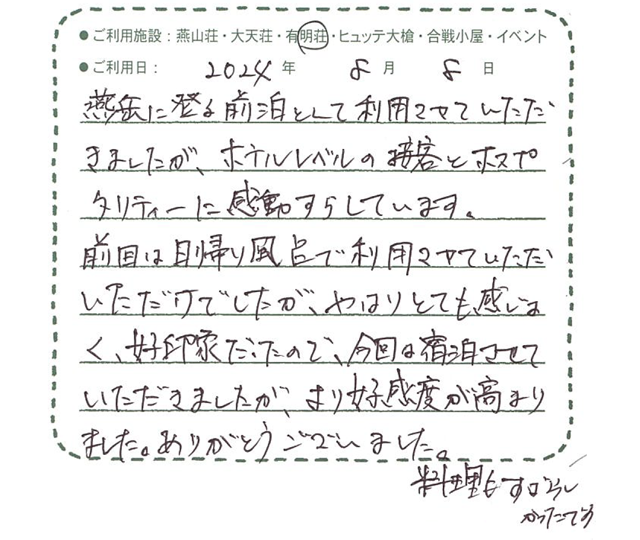 ●ご利用施設：燕山荘・大天荘・有明荘・ヒュッテ大槍・合戦小屋・イベント
●ご利用日： 2024 年 8 月 8 日
燕岳に登る前泊として利用させていただ
きましたが、ホテルレベルの接客とホスピ
タリティーに感動すらしています。
前回は日帰り風呂で利用させていただ
いただけでしたが、やはりとても感じよ
く、好印象だったので、今回は宿泊させて
いただきましたが、より好感度が高まり
ました。ありがとうございました。
料理もすばらし
かったです